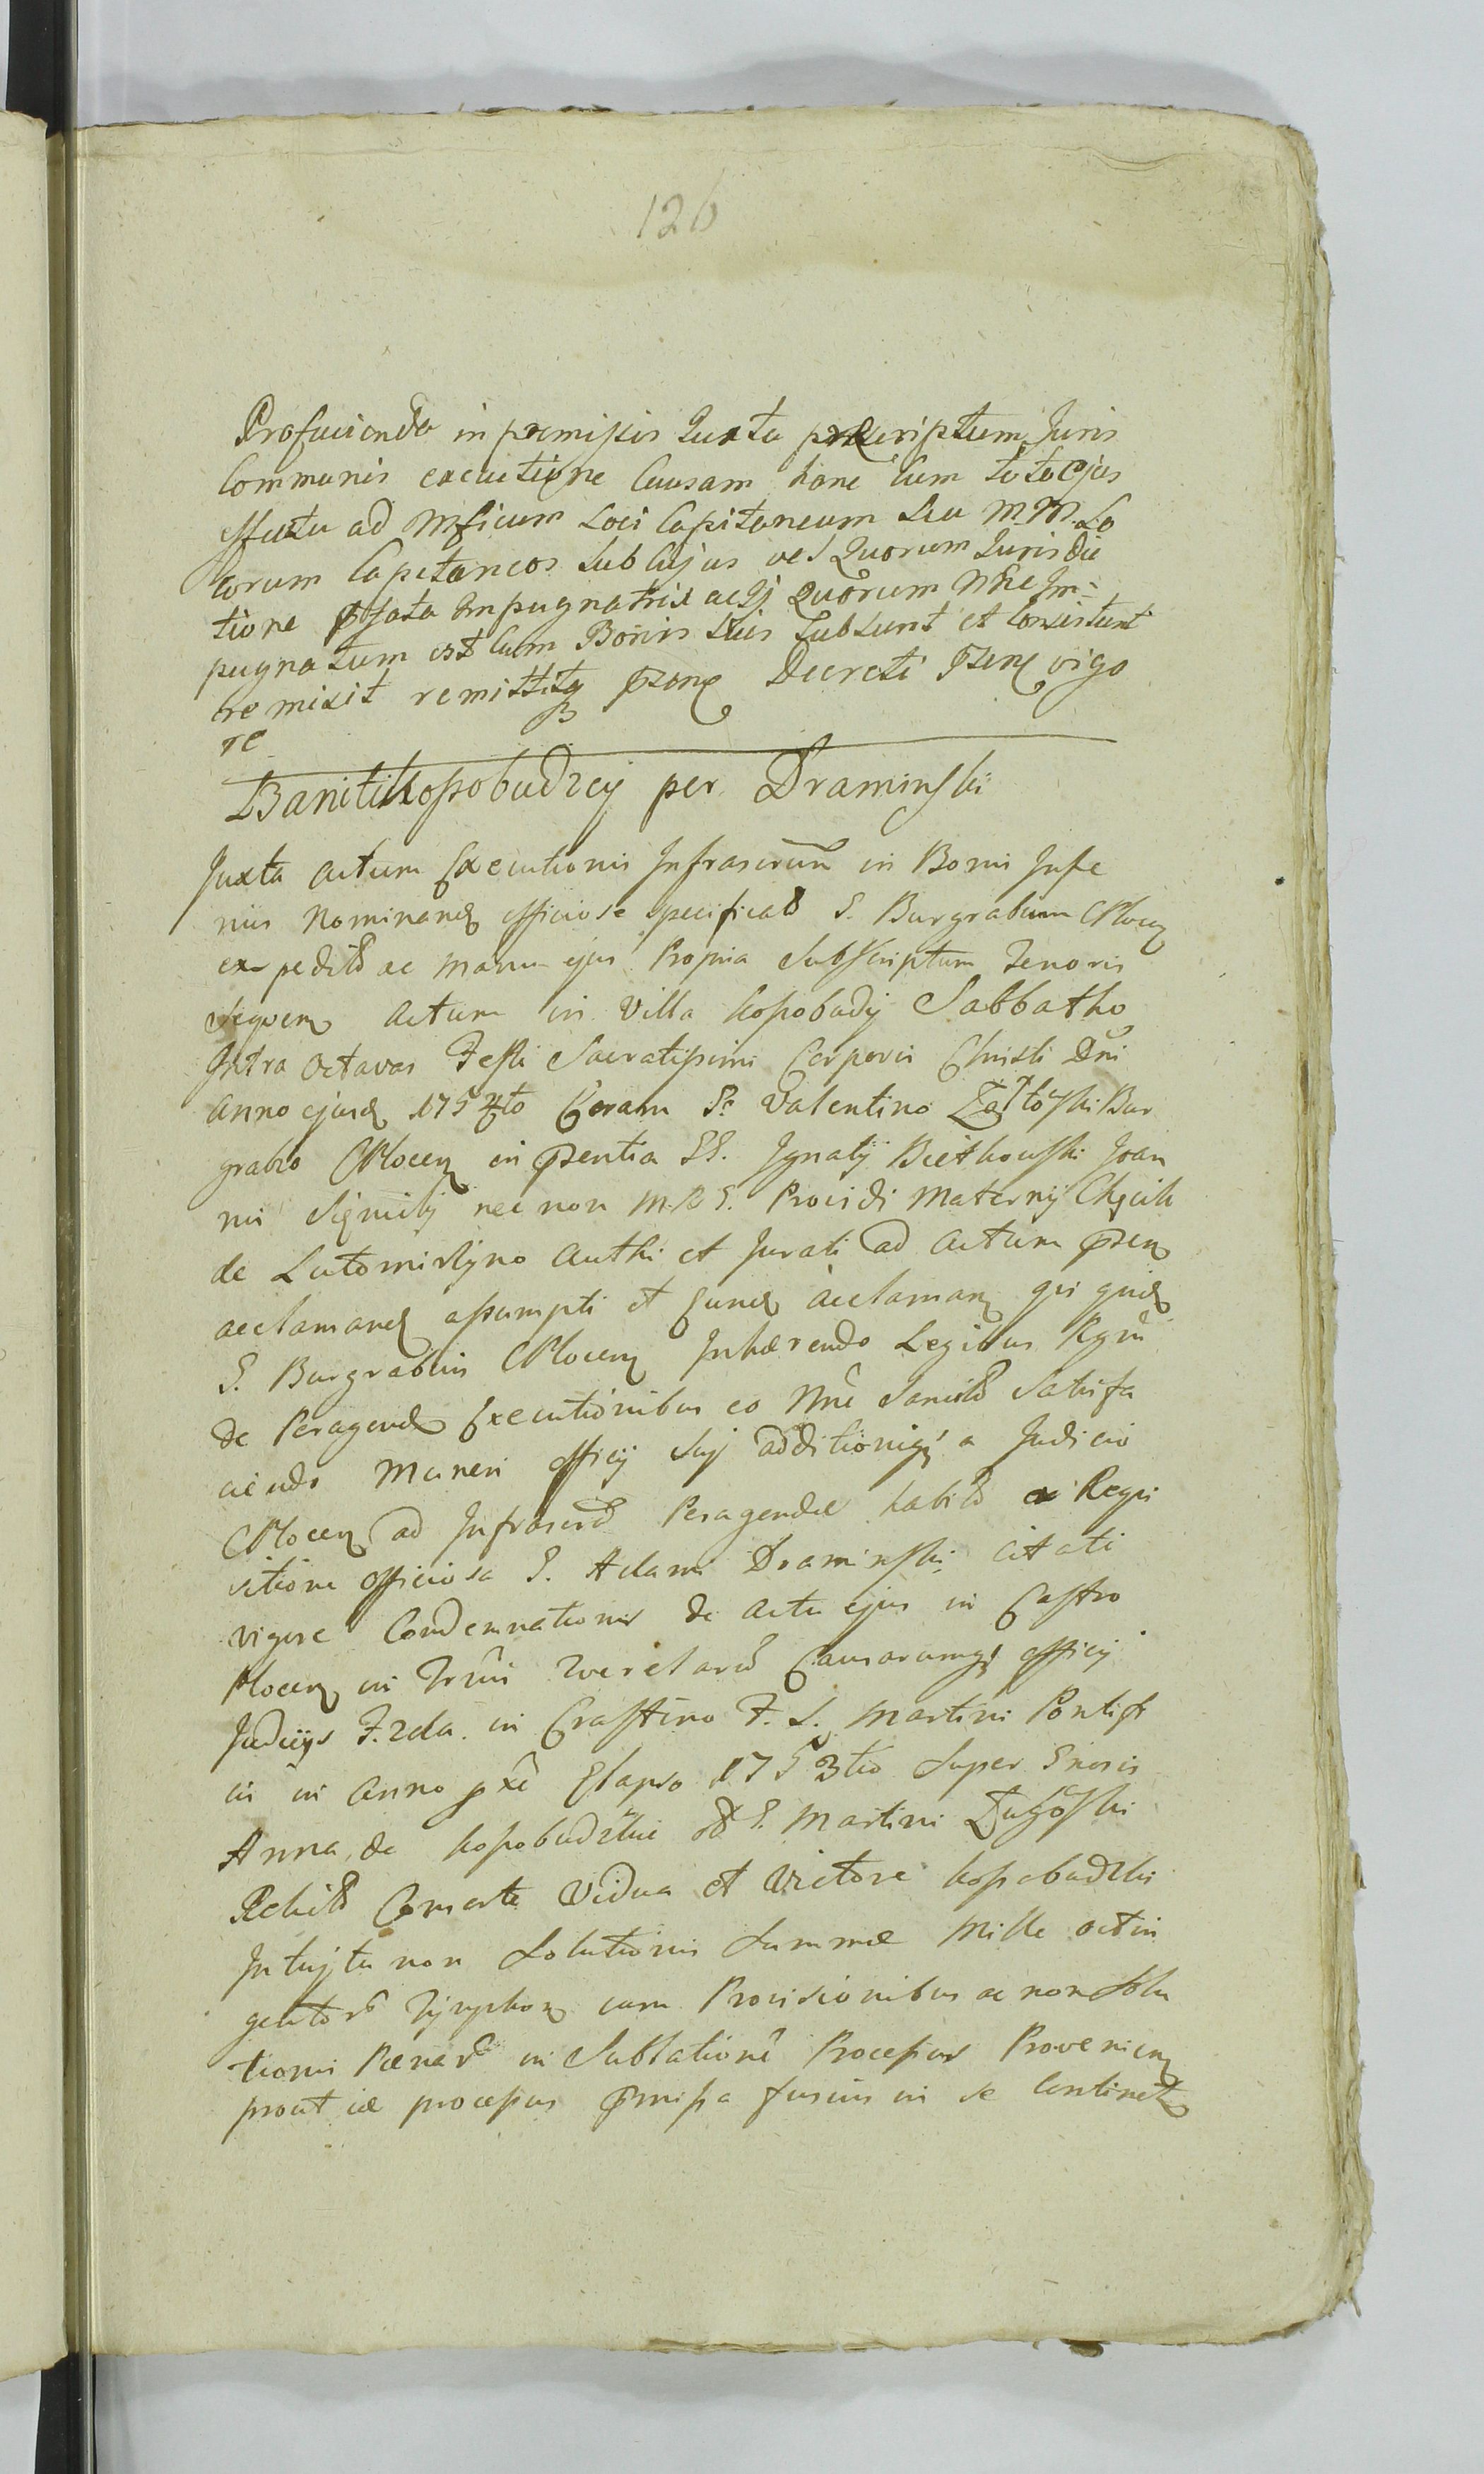 126
Profacienda in præmissis Juxta præscriptum Juris
Communis executione Causam hanc Cum toto ejus
effectu ad Mficum Loci Capitaneum Seu M.M. Lo
corum Capitaneos Sub Cujus vel Quorum Jurisdic
tione Impugnatrix Quorum Nne Im-
pugnatum est Cum Bonis Suis Subsunt et Consistunt
remisit remittitq Decreti vigo
re
Baniti Kossobudzcy per Draminski
Juxta actum Executionis Infrascrum in Bonis Infe
rius Nominand officiose specificat G. Burgrabium CPlocen
expedit ac manu ejus Propria Subscriptum Tenoris
Sequen Actum in Villa Kossobudy Sabbatho
Intra Octavas Festi Sacratissimi Corporis Christi Dni
Anno ejusd 1754to Coram G. Valentino Bur
grabio CPlocen in pzentia GG. Ignatij Bieńkowski Joan
nis nec non M. R. G. Providi Materny
de Lutomirzyno Authi et Jurati ad actum pzen
acclamand assumpti et acclaman qui quid
G. Burgrabius CPlocen Inhærendo Legibus Rgni
de Peragend Executionibus eo Nne Sancit Satisfa
ciendo Muneri officij Suj additionisq a Judicio
CPlocen ad Infrascr Peragendæ habit ex Requi
sitione officiosa G. Adami Draminski citati
vigore Condemnationis de actu ejus in Castro
Plocen in Trmis Querelaru Causarumq officij
Judicijs F. 2da in Crastino F. S. Martini Pontifi
cis in Anno pxe Elapso 1753tio Super Gnosis
Anna de Kossobudzkie G. Martini
Relict Consorte Vidua et Victore Kossobudzki
Intujtu non Solutionis Summæ Mille octin
gentor Tynphon cum Provisionibus ac non Solu
tionis Pænar in Sublatione Processus Provenien
prout iæ processus pmissa fusius in se Continet